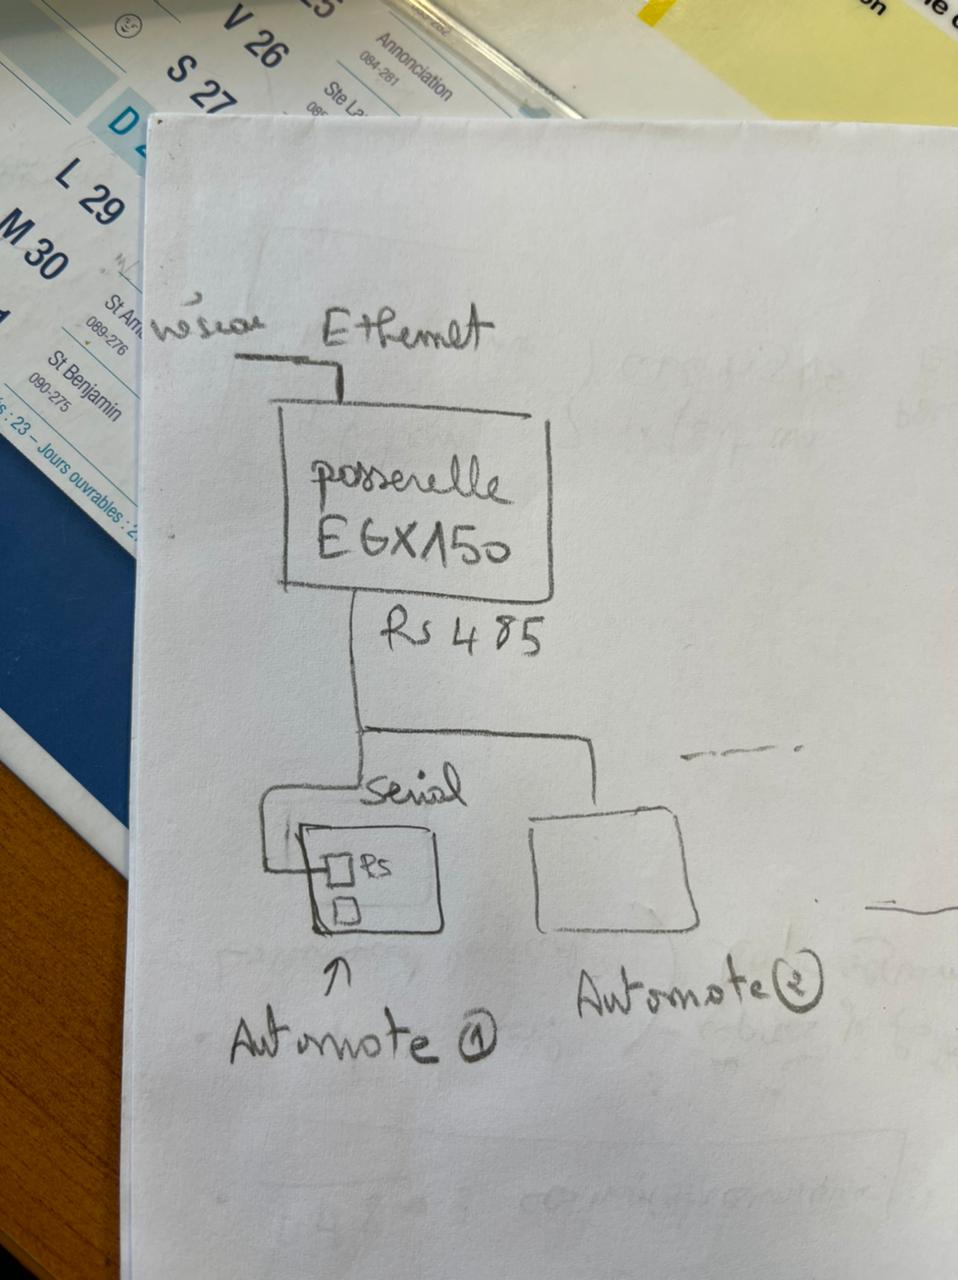 25
V 26
Annonciation
084-281
S 27
Ste La
08
D 2
L 29
M 30
St Am
089-276
St Benjamin
090-275
s : 23 – Jours ouvrables : 2
on
réseau Ethernet
passerelle
EGX150
Rs 485
serial
Rs
Automate ①
Automate ②